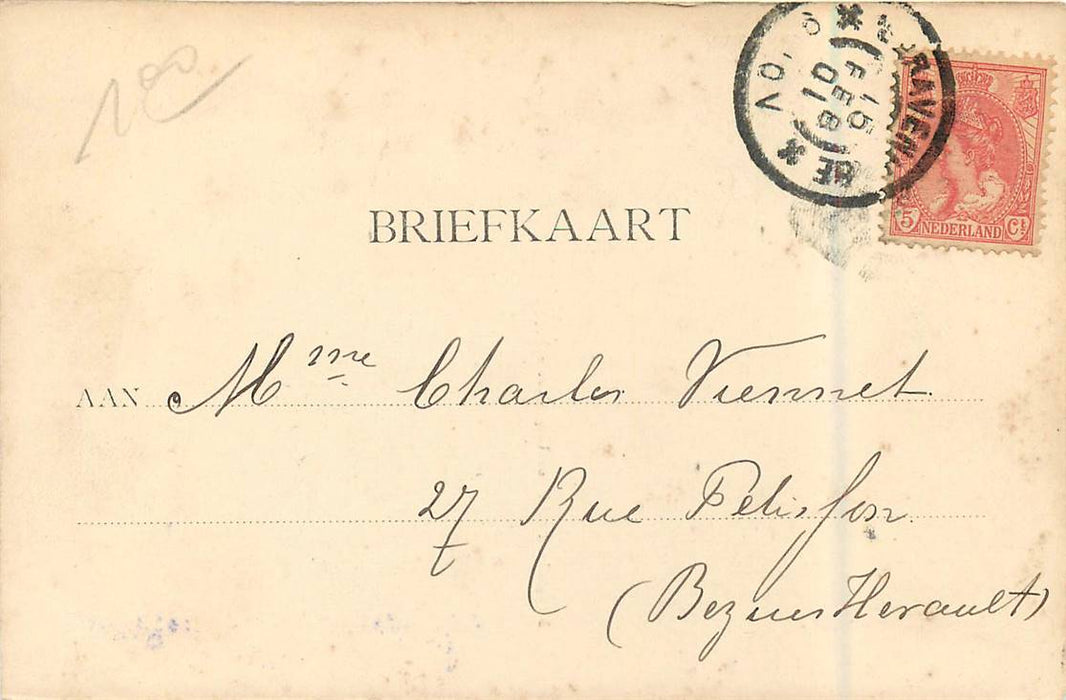 100
'S GRAVENHAGE
15 FEB 01
6-10V
5 NEDERLAND Ct
BRIEFKAART
AAN Mme Charles Viennet
27 Rue Pelisson
(Beziers Herault)